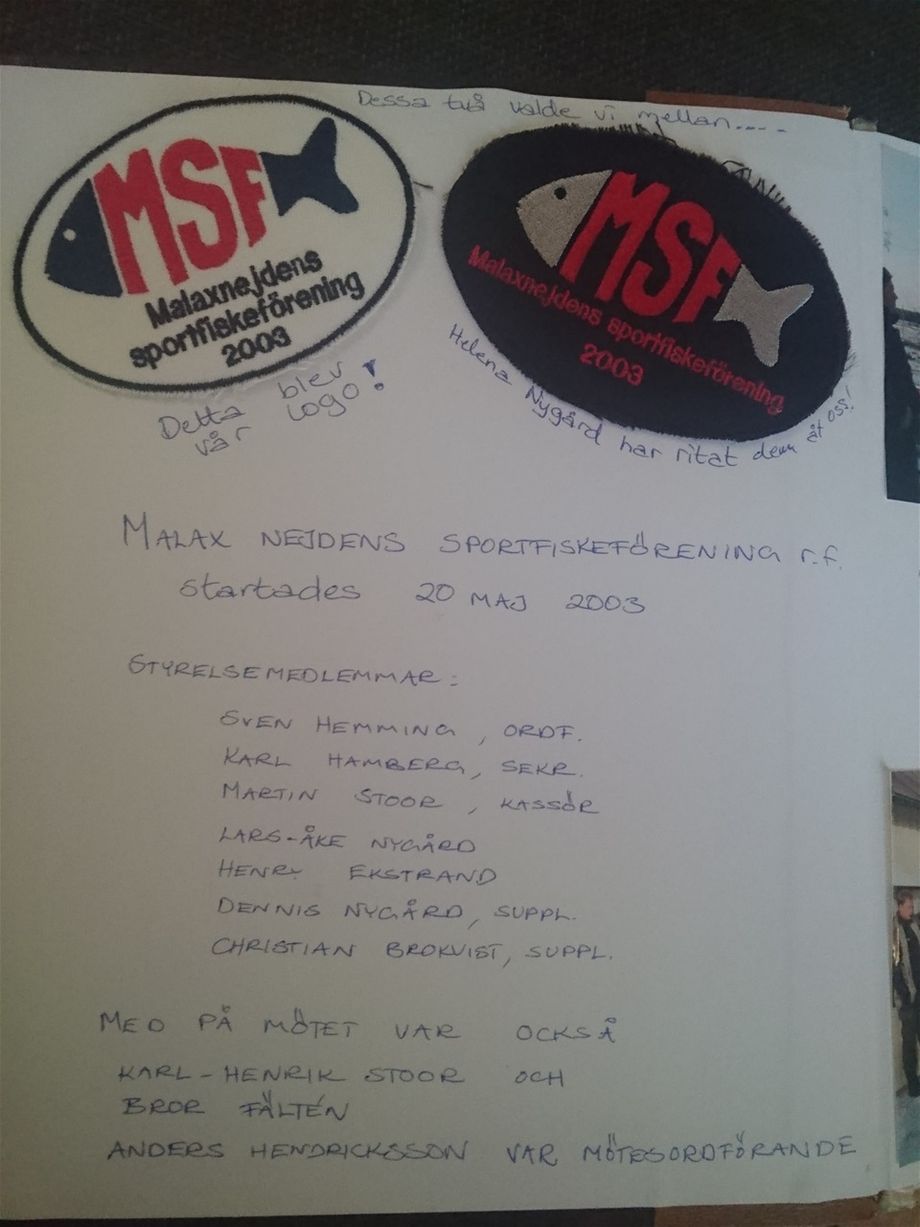 Dessa två valde vi mellan.....
MSF
Malaxnejdens
sportfiskeförening
2003
MSF
Malaxnejdens sportfiskeförening
2003
Detta blev
vår logo!
Helena Nygård har ritat dem åt oss!
MALAX NEJDENS SPORTFISKEFÖRENING r.f.
startades 20 MAJ 2003
STYRELSEMEDLEMMAR:
SVEN HEMMING, ORDF.
KARL HAMBERG, SEKR.
MARTIN STOOR, KASSÖR
LARS-ÅKE NYGÅRD
HENRY EKSTRAND
DENNIS NYGÅRD, SUPPL.
CHRISTIAN BROKVIST, SUPPL.
MED PÅ MÖTET VAR OCKSÅ
KARL-HENRIK STOOR OCH
BROR FÄLTÉN
ANDERS HENDRICKSSON VAR MÖTESORDFÖRANDE